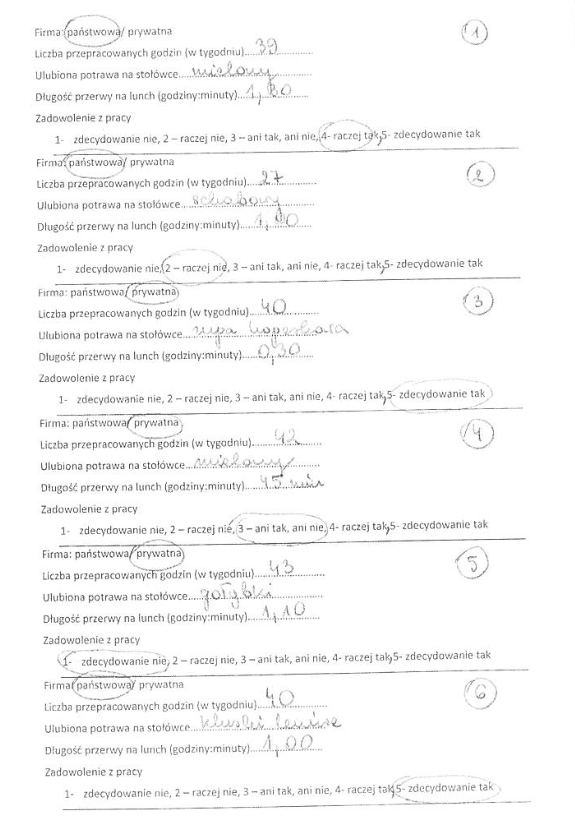 Firma: państwowa/ prywatna 1
Liczba przepracowanych godzin (w tygodniu) 39
Ulubiona potrawa na stołówce mielony
Długość przerwy na lunch (godziny:minuty) 1,30
Zadowolenie z pracy
1- zdecydowanie nie, 2 – raczej nie, 3 – ani tak, ani nie, 4- raczej tak, 5- zdecydowanie tak
Firma: państwowa/ prywatna 2
Liczba przepracowanych godzin (w tygodniu) 27
Ulubiona potrawa na stołówce schabowy
Długość przerwy na lunch (godziny:minuty)
Zadowolenie z pracy
1- zdecydowanie nie, 2 – raczej nie, 3 – ani tak, ani nie, 4- raczej tak, 5- zdecydowanie tak
Firma: państwowa/ prywatna 3
Liczba przepracowanych godzin (w tygodniu) 40
Ulubiona potrawa na stołówce
Długość przerwy na lunch (godziny:minuty) 0,30
Zadowolenie z pracy
1- zdecydowanie nie, 2 – raczej nie, 3 – ani tak, ani nie, 4- raczej tak, 5- zdecydowanie tak
Firma: państwowa/ prywatna 4
Liczba przepracowanych godzin (w tygodniu) 42
Ulubiona potrawa na stołówce mielony
Długość przerwy na lunch (godziny:minuty) 45 min
Zadowolenie z pracy
1- zdecydowanie nie, 2 – raczej nie, 3 – ani tak, ani nie, 4- raczej tak, 5- zdecydowanie tak
Firma: państwowa/ prywatna 5
Liczba przepracowanych godzin (w tygodniu) 43
Ulubiona potrawa na stołówce gołąbki
Długość przerwy na lunch (godziny:minuty) 1,10
Zadowolenie z pracy
1- zdecydowanie nie, 2 – raczej nie, 3 – ani tak, ani nie, 4- raczej tak, 5- zdecydowanie tak
Firma: państwowa/ prywatna 6
Liczba przepracowanych godzin (w tygodniu) 40
Ulubiona potrawa na stołówce kluski leniwe
Długość przerwy na lunch (godziny:minuty) 1,00
Zadowolenie z pracy
1- zdecydowanie nie, 2 – raczej nie, 3 – ani tak, ani nie, 4- raczej tak, 5- zdecydowanie tak